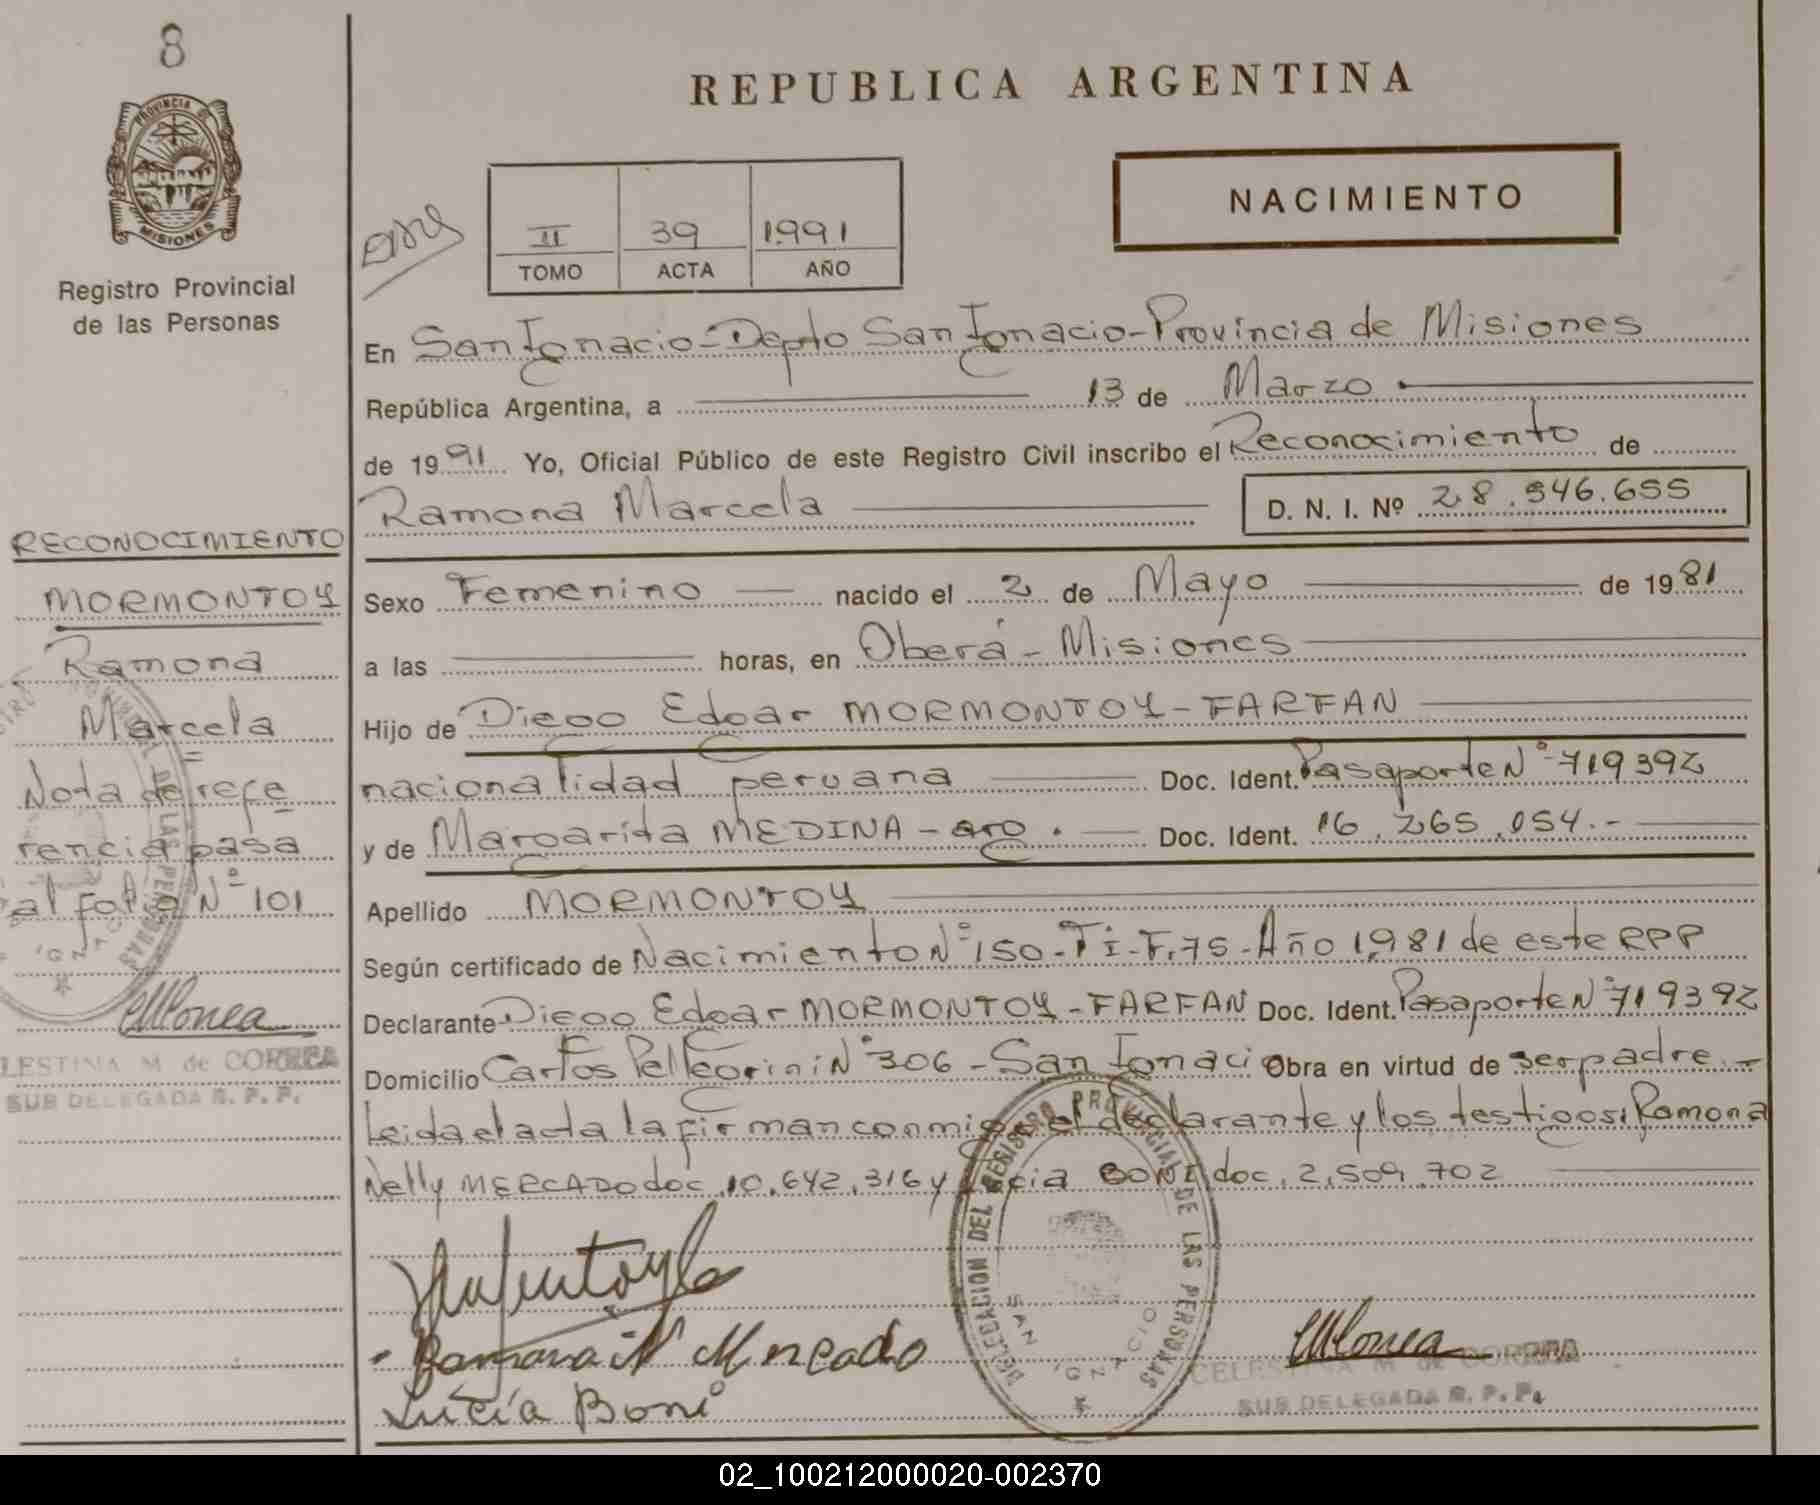 8
PROVINCIA DE
MISIONES
Registro Provincial
de las Personas
RECONOCIMIENTO
MORMONTOY
Ramona
Marcela
Nota de refe
rencia pasa
al folio Nº 101
CELESTINA M de CORREA
SUB DELEGADA R. P. P.
REPUBLICA ARGENTINA
NACIMIENTO
II 39 1991
TOMO ACTA AÑO
En San Ignacio - Depto San Ignacio - Provincia de Misiones
República Argentina, a 13 de Marzo
de 1991 Yo, Oficial Público de este Registro Civil inscribo el Reconocimiento de
Ramona Marcela D. N. I. Nº 28.546.655
Sexo Femenino nacido el 2 de Mayo de 1981
a las horas, en Oberá - Misiones
Hijo de Diego Edgar MORMONTOY - FARFAN
nacionalidad peruana Doc. Ident. Pasaporte Nº 719392
y de Margarita MEDINA - arg. Doc. Ident. 16.265.054.-
Apellido MORMONTOY
Según certificado de Nacimiento Nº 150 - T I - F. 75 - Año 1.981 de este RPP
Declarante Diego Edgar MORMONTOY - FARFAN Doc. Ident. Pasaporte Nº 719392
Domicilio Carlos Pellegrini Nº 306 - San Ignacio Obra en virtud de ser padre.-
Leida el acta la firman conmigo el declarante y los testigos: Ramona
Nelly MERCADO doc. 10.642.316 y Lucia BONI doc. 2.509.702
DELEGACION DEL REGISTRO PROVINCIAL DE LAS PERSONAS
SAN IGNACIO
Ramona N Mercado
Lucía Boni
CELESTINA M de CORREA
SUB DELEGADA R. P. P.
02_100212000020-002370